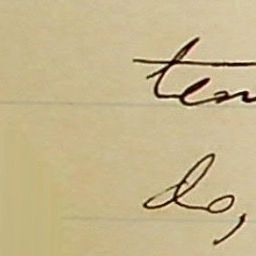 ten
do,